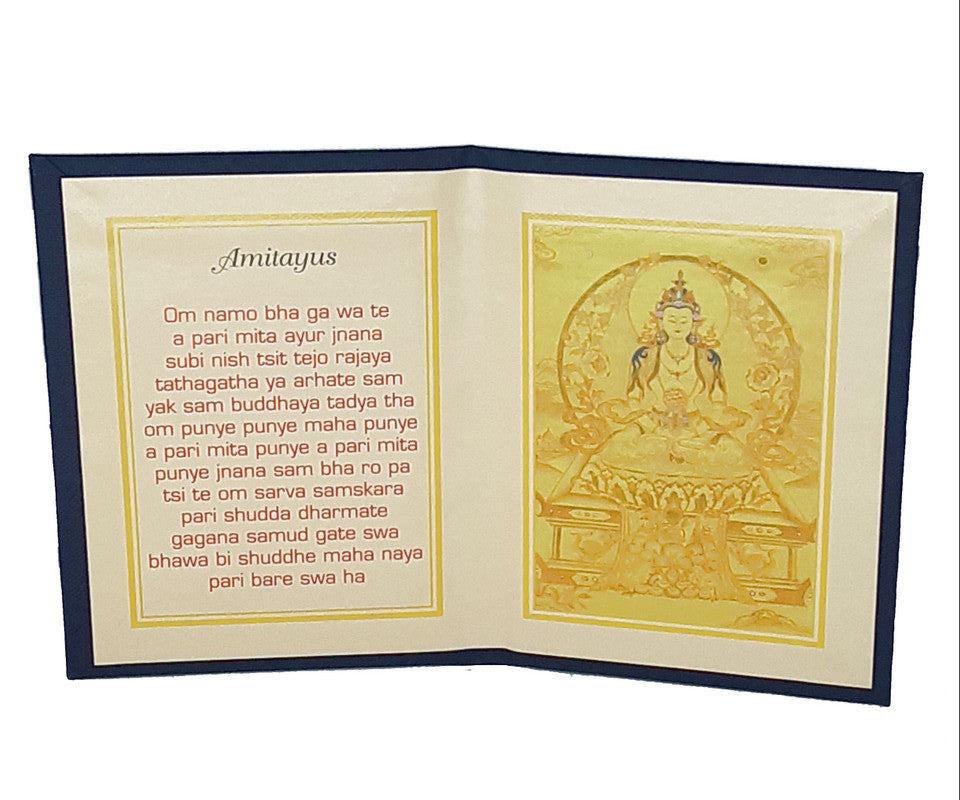 Amitayus
Om namo bha ga wa te
a pari mita ayur jnana
subi nish tsit tejo rajaya
tathagatha ya arhate sam
yak sam buddhaya tadya tha
om punye punye maha punye
a pari mita punye a pari mita
punye jnana sam bha ro pa
tsi te om sarva samskara
pari shudda dharmate
gagana samud gate swa
bhawa bi shuddhe maha naya
pari bare swa ha